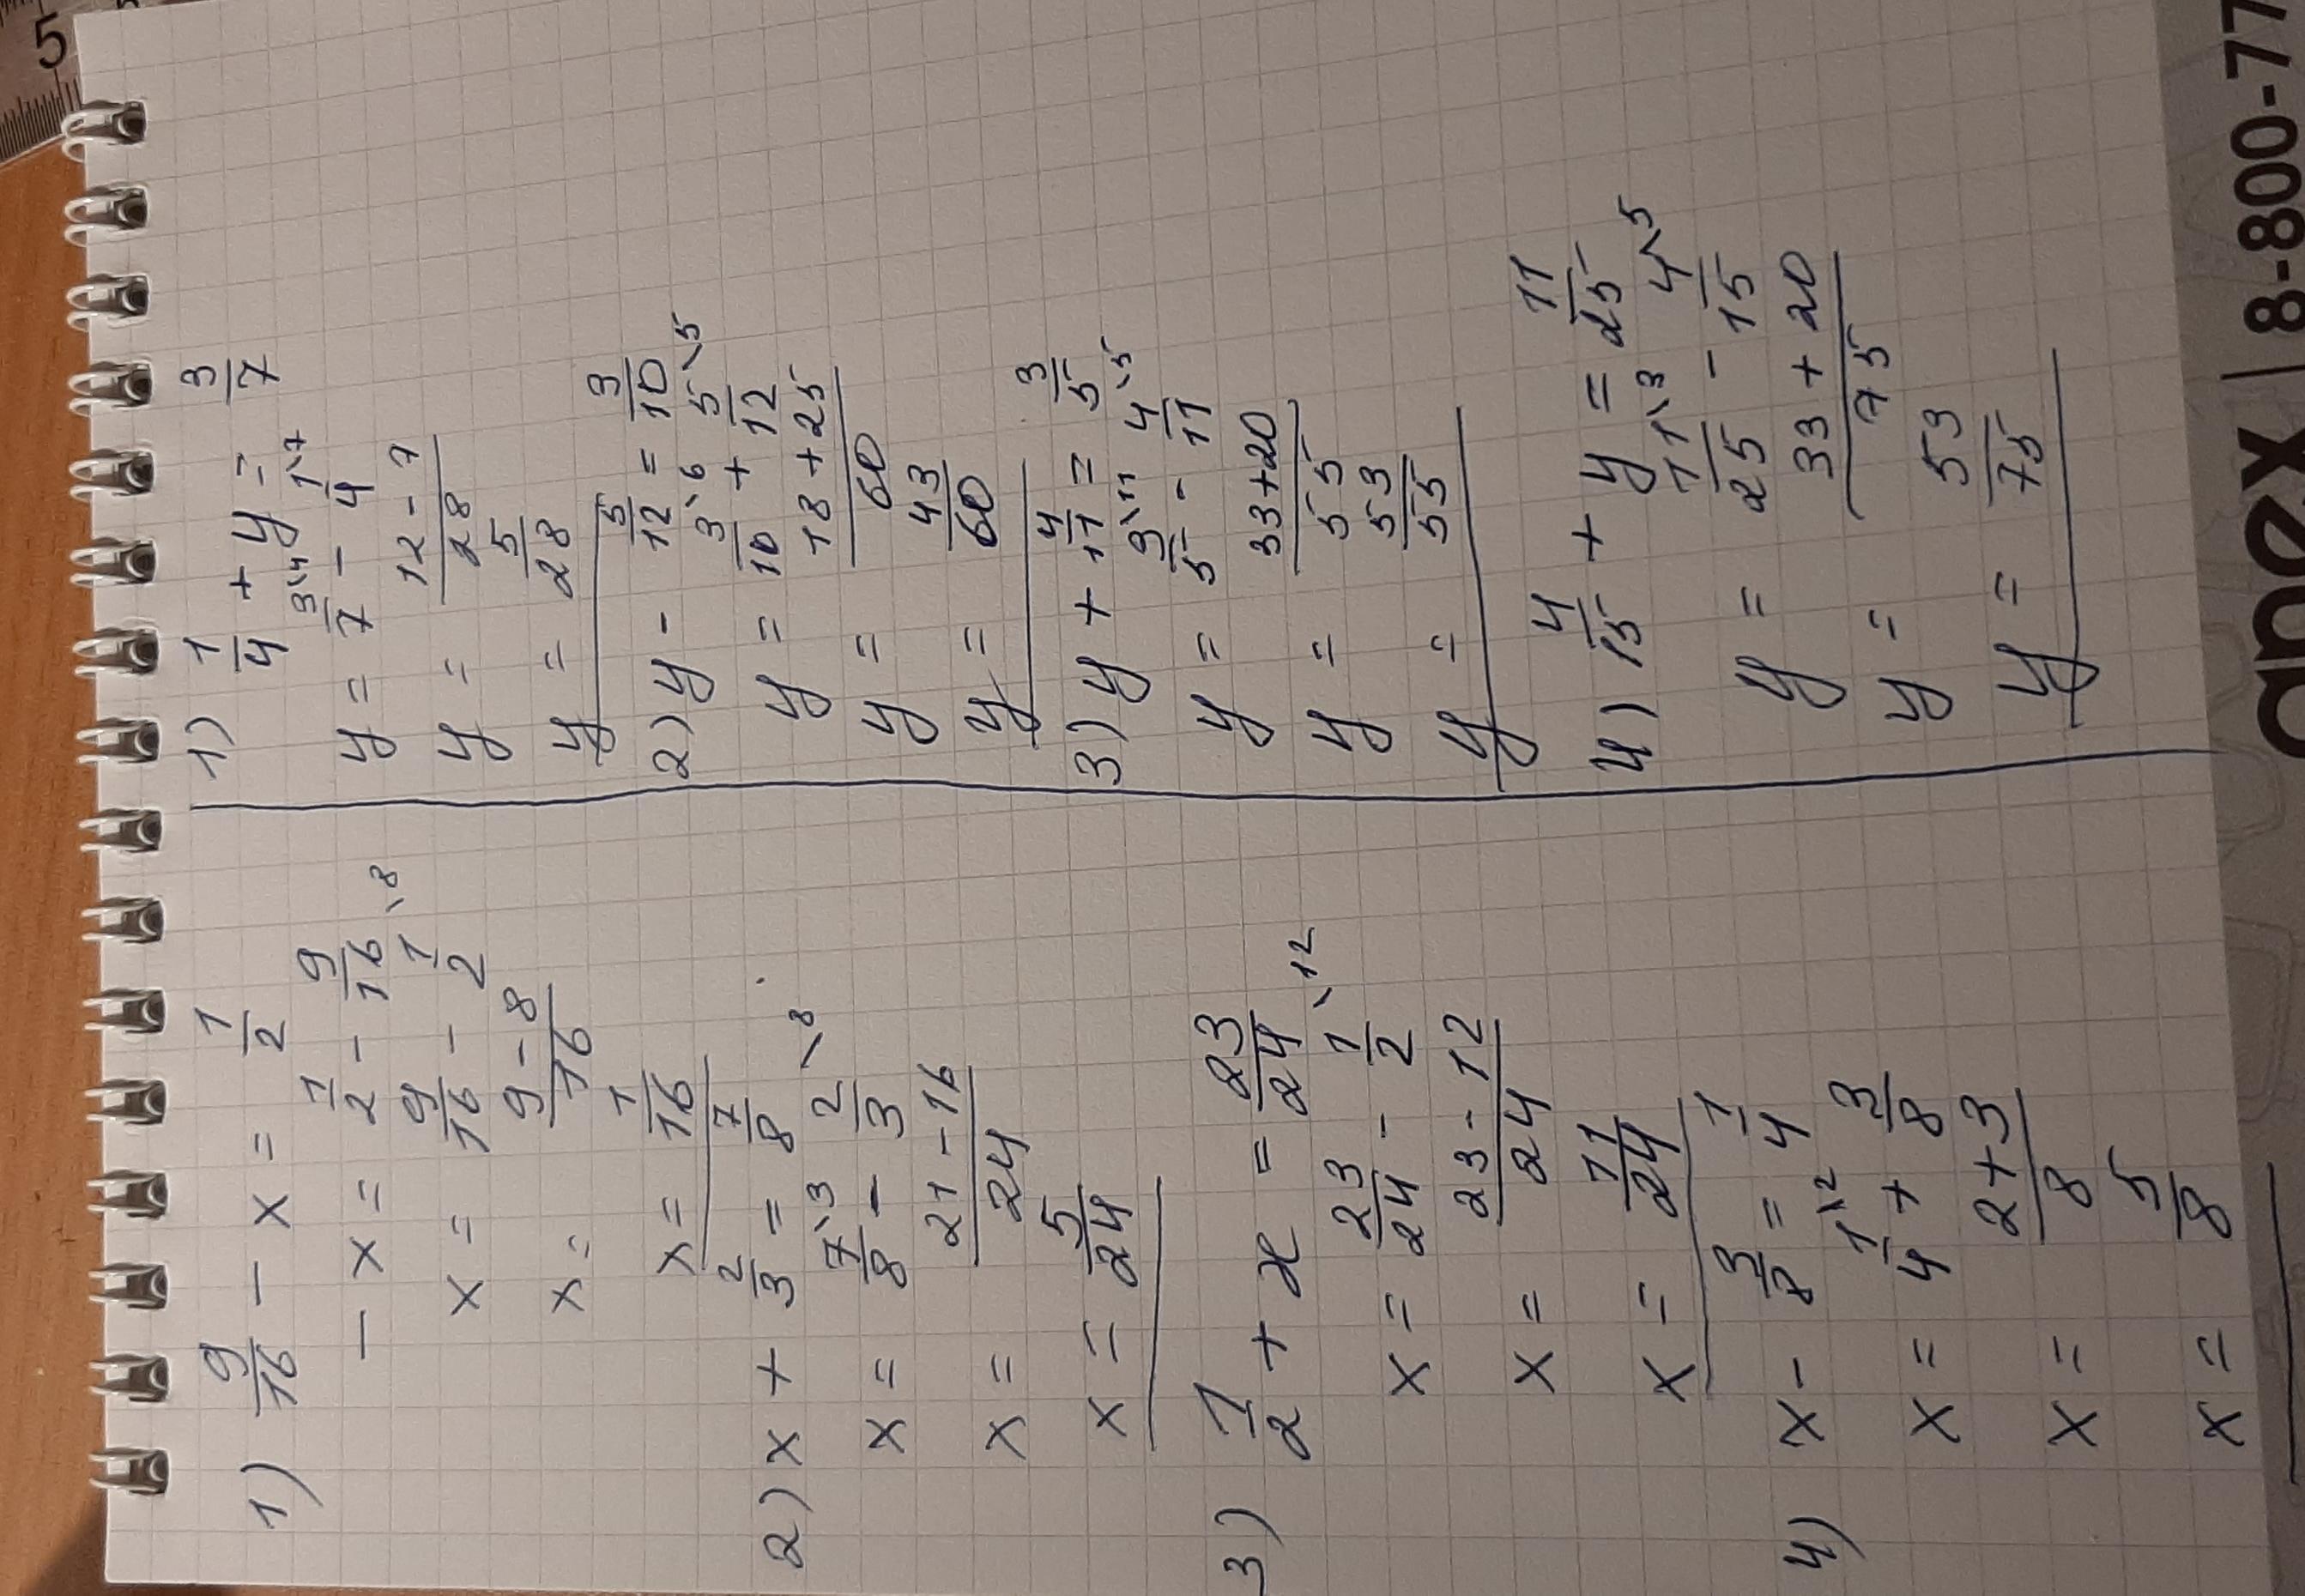 1) 9/16 - x = 1/2
- x = 1/2 - 9/16
x = 9/16 - 1/2 \8
x = 9-8/16
x = 1/16
2) x + 2/3 = 7/8
x = 7/8 \3 - 2/3 \8
x = 21-16/24
x = 5/24
3) 1/2 + x = 23/24
x = 23/24 - 1/2 \12
x = 23-12/24
x = 11/24
4) x - 3/8 = 1/4
x = 1/4 \2 + 3/8
x = 2+3/8
x = 5/8
1) 1/4 + y = 3/7
y = 3/7 \4 - 1/4 \7
y = 12-7/28
y = 5/28
2) y - 5/12 = 3/10
y = 3/10 \6 + 5/12 \5
y = 18+25/60
y = 43/60
3) y + 4/11 = 3/5
y = 3/5 \11 - 4/11 \5
y = 33+20/55
y = 53/55
4) 4/15 + y = 11/25
y = 11/25 \3 - 4/15 \5
y = 33+20/75
y = 53/75
5
anex | 8-800-77